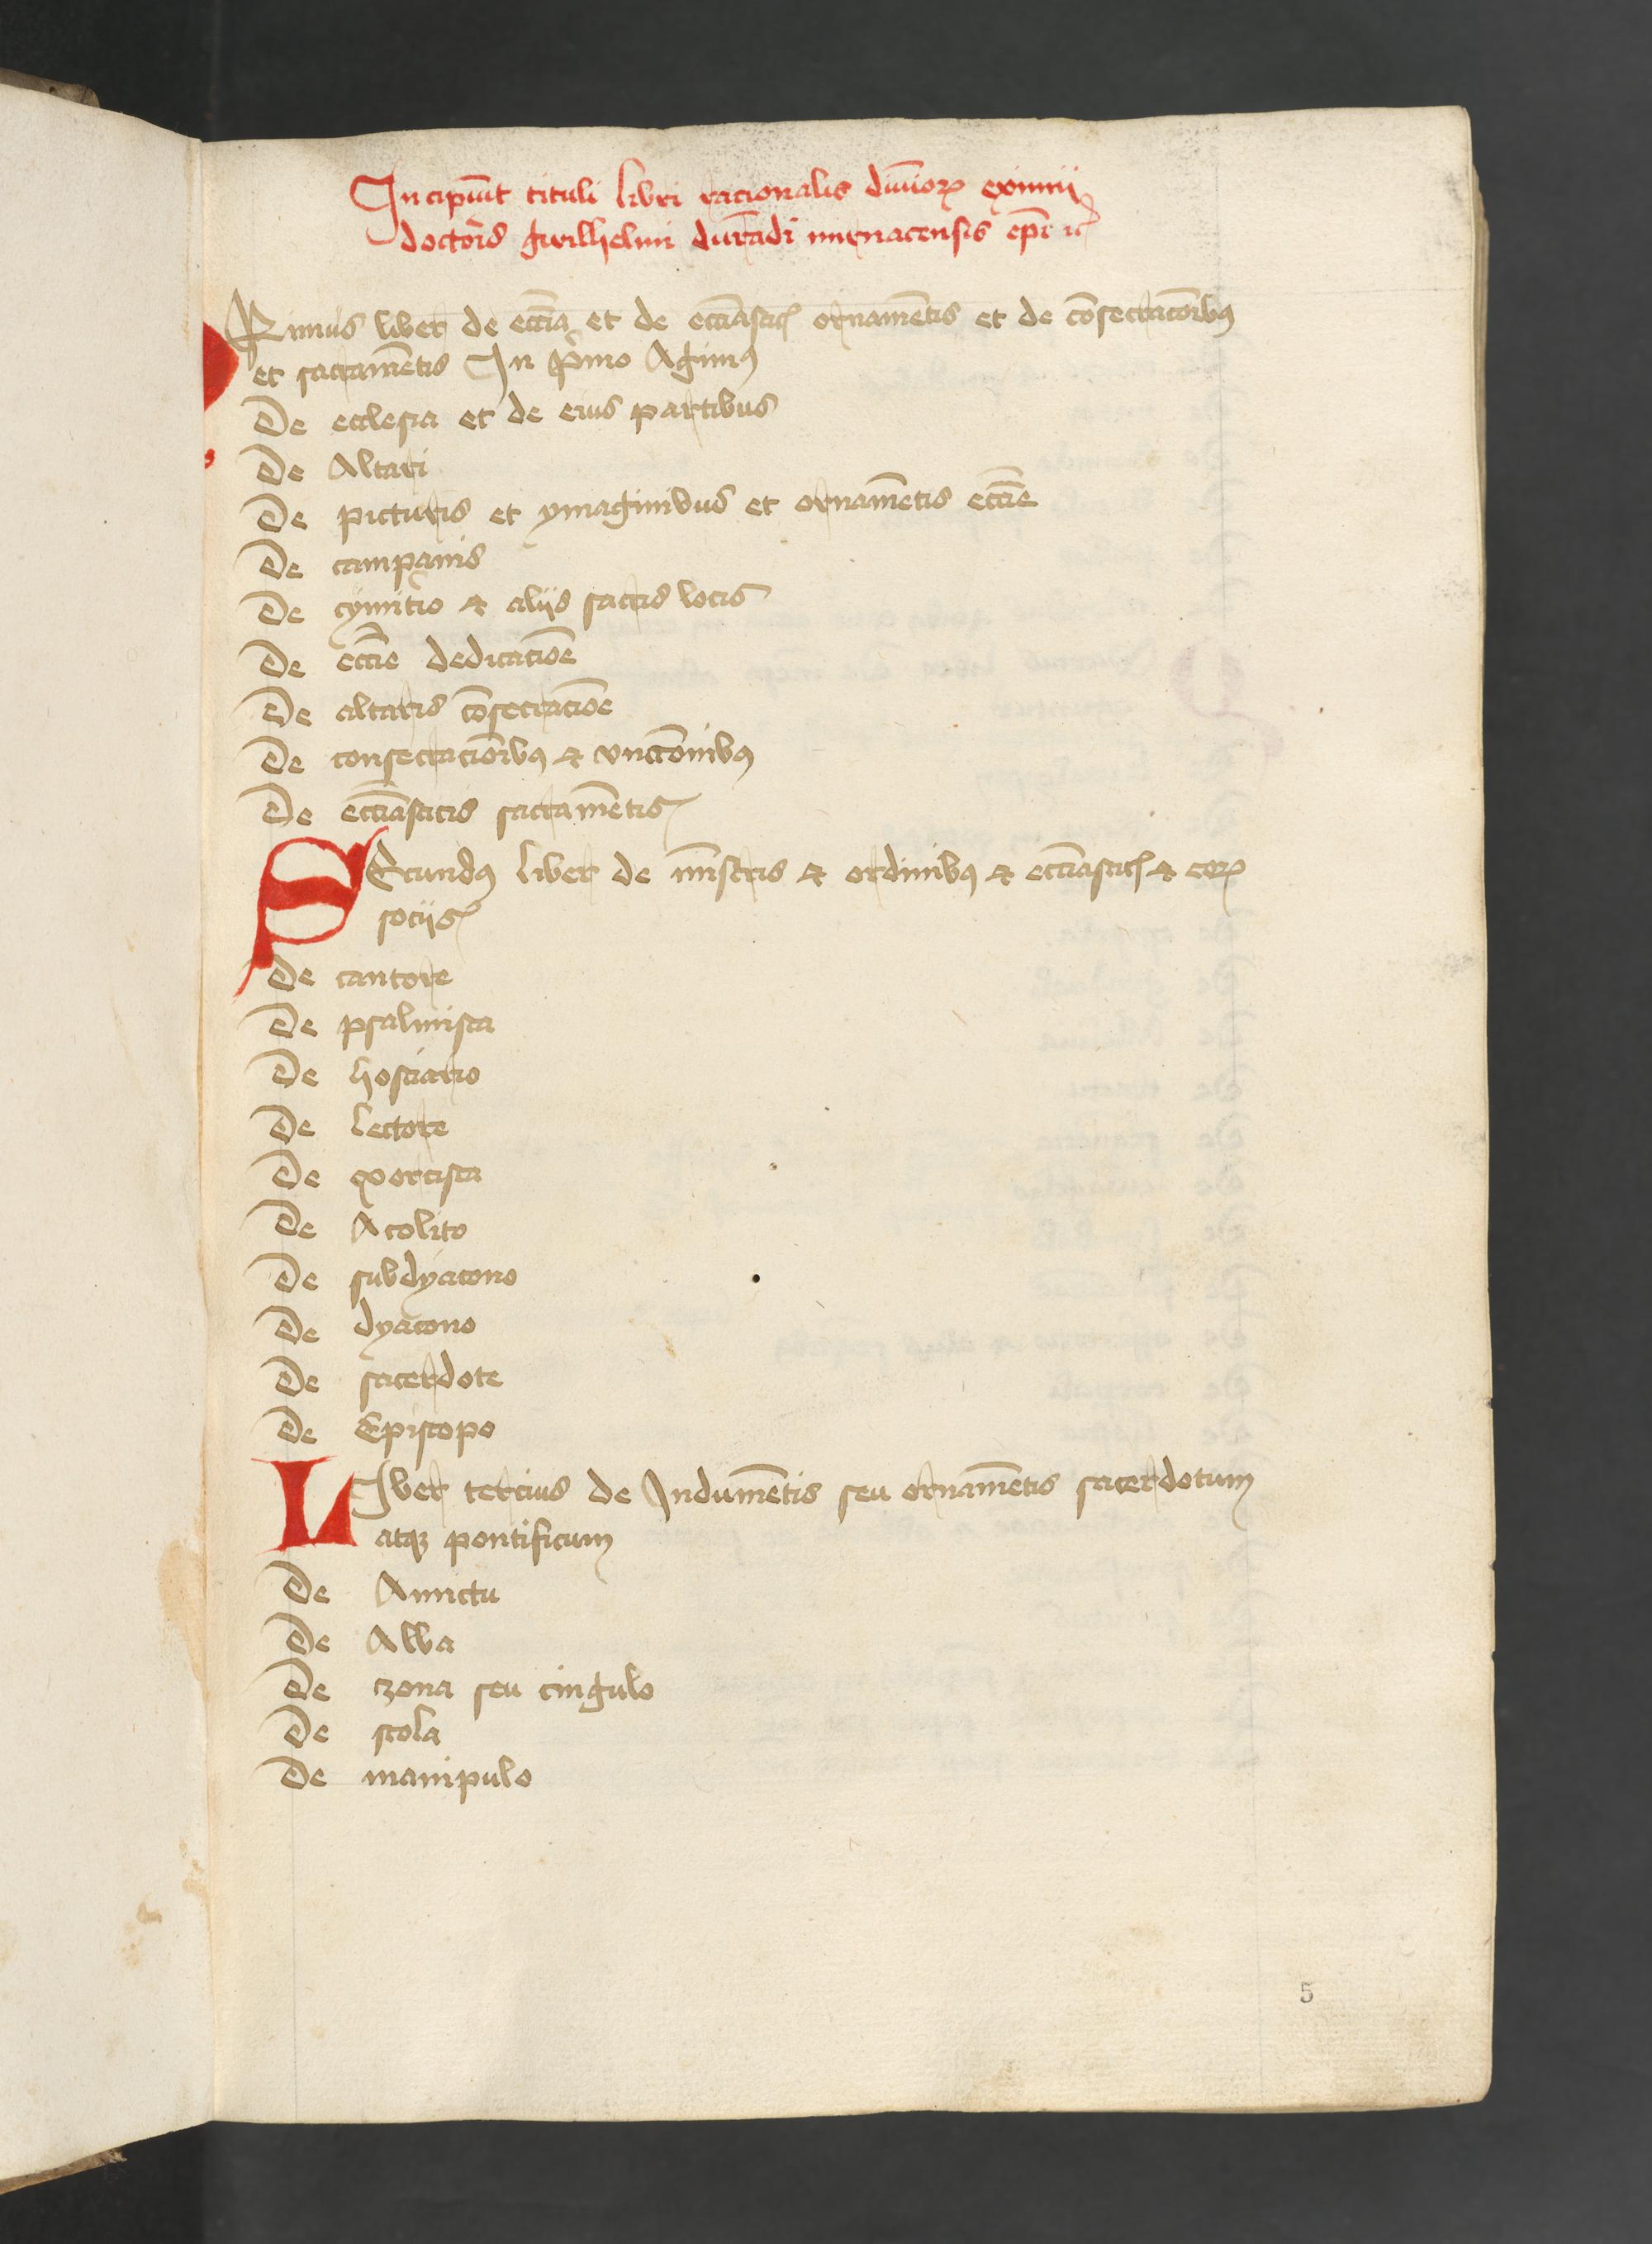 Incipiūt tituli libri racionalis diuīoꝝ eximij
doctoris gwilhelmi durādi mimacensis epī ꝛc̄
PRimus liber de eccīa et de ecciāsticꝭ ornamētis et de cōsecracōibꝯ
et sacramētis In pͥmo Agimꝯ
De ecclesia et de eius partibus
De Altari
De picturis et ymaginibus et ornamētis eccīe
De campanis
De cymit̄io ⁊ alijs sacris locis
De eccīe dedicacōe
De altaris cōsecracōe
De consecracōibꝯ ⁊ vnctōnibꝯ
De ecciāsticis sacramētis
SEcundꝯ liber de mīstris ⁊ ordinibꝯ ⁊ ecciāsticꝭ ⁊ eoꝝ
socijs
De cantore
De psalmista
De hostiario
De lectore
De exorcista
De Acolito
De subdyacono
De dyacono
De sacerdote
De Episcopo
LIber tercius de Indumētis seu ornamētis sacerdotum
atqꝫ pontificum
De Amictu
De Alba
De czona seu cingulo
De stola
De manipulo
5